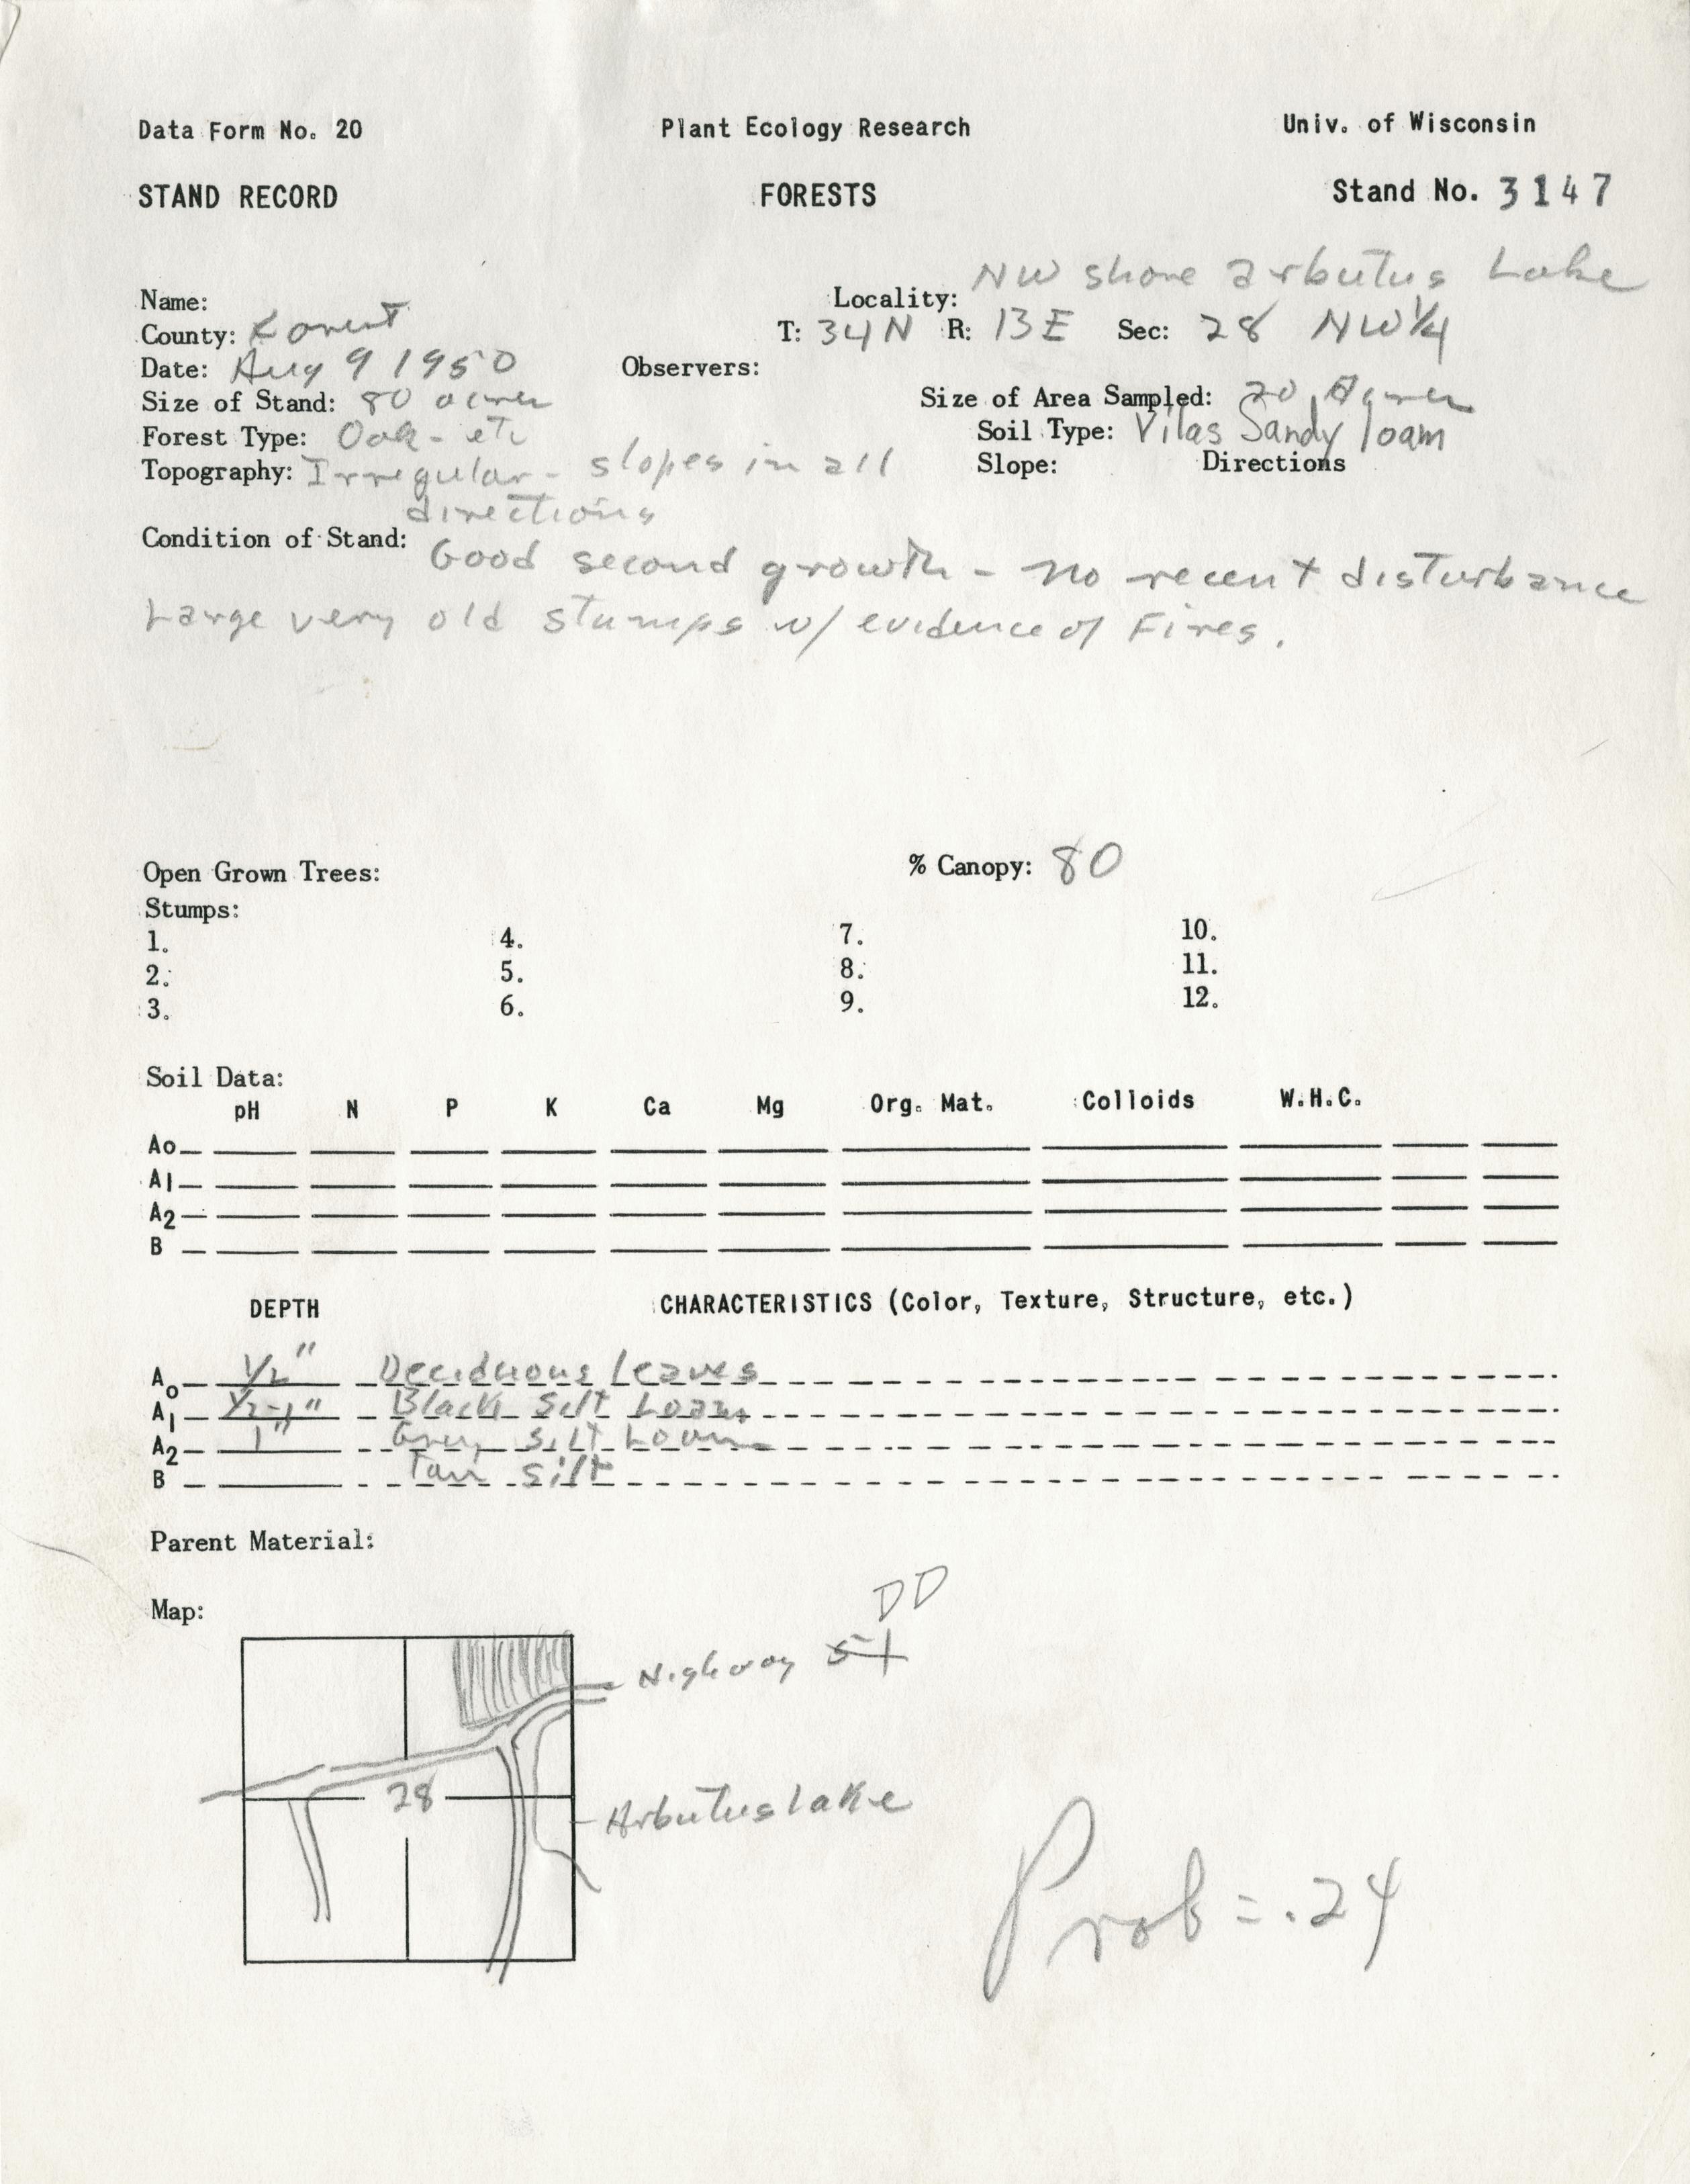 Data Form No. 20 Plant Ecology Research Univ. of Wisconsin
STAND RECORD FORESTS Stand No. 3147
Name: Locality: NW shore Arbutus Lake
County: Forest T: 34N R: 13E Sec: 28 NW 1/4
Date: Aug 9 1950 Observers:
Size of Stand: 80 acres Size of Area Sampled: 20 Acres
Forest Type: Oak - etc Soil Type: Vilas Sandy loam
Topography: Irregular - slopes in all Slope: Directions
directions
Condition of Stand: Good second growth - no recent disturbance
Large very old stumps w/ evidence of Fires.
Open Grown Trees: % Canopy: 80
Stumps:
1. 4. 7. 10.
2. 5. 8. 11.
3. 6. 9. 12.
Soil Data:
pH N P K Ca Mg Org. Mat. Colloids W.H.C.
Ao
A1
A2
B
DEPTH CHARACTERISTICS (Color, Texture, Structure, etc.)
Ao 1/2" Deciduous leaves
A1 1/2-1" Black Silt Loam
A2 1" Grey silt Loam
B Tan silt
Parent Material:
Map:
DD
Highway
28
Arbutus lake
Prob = .24